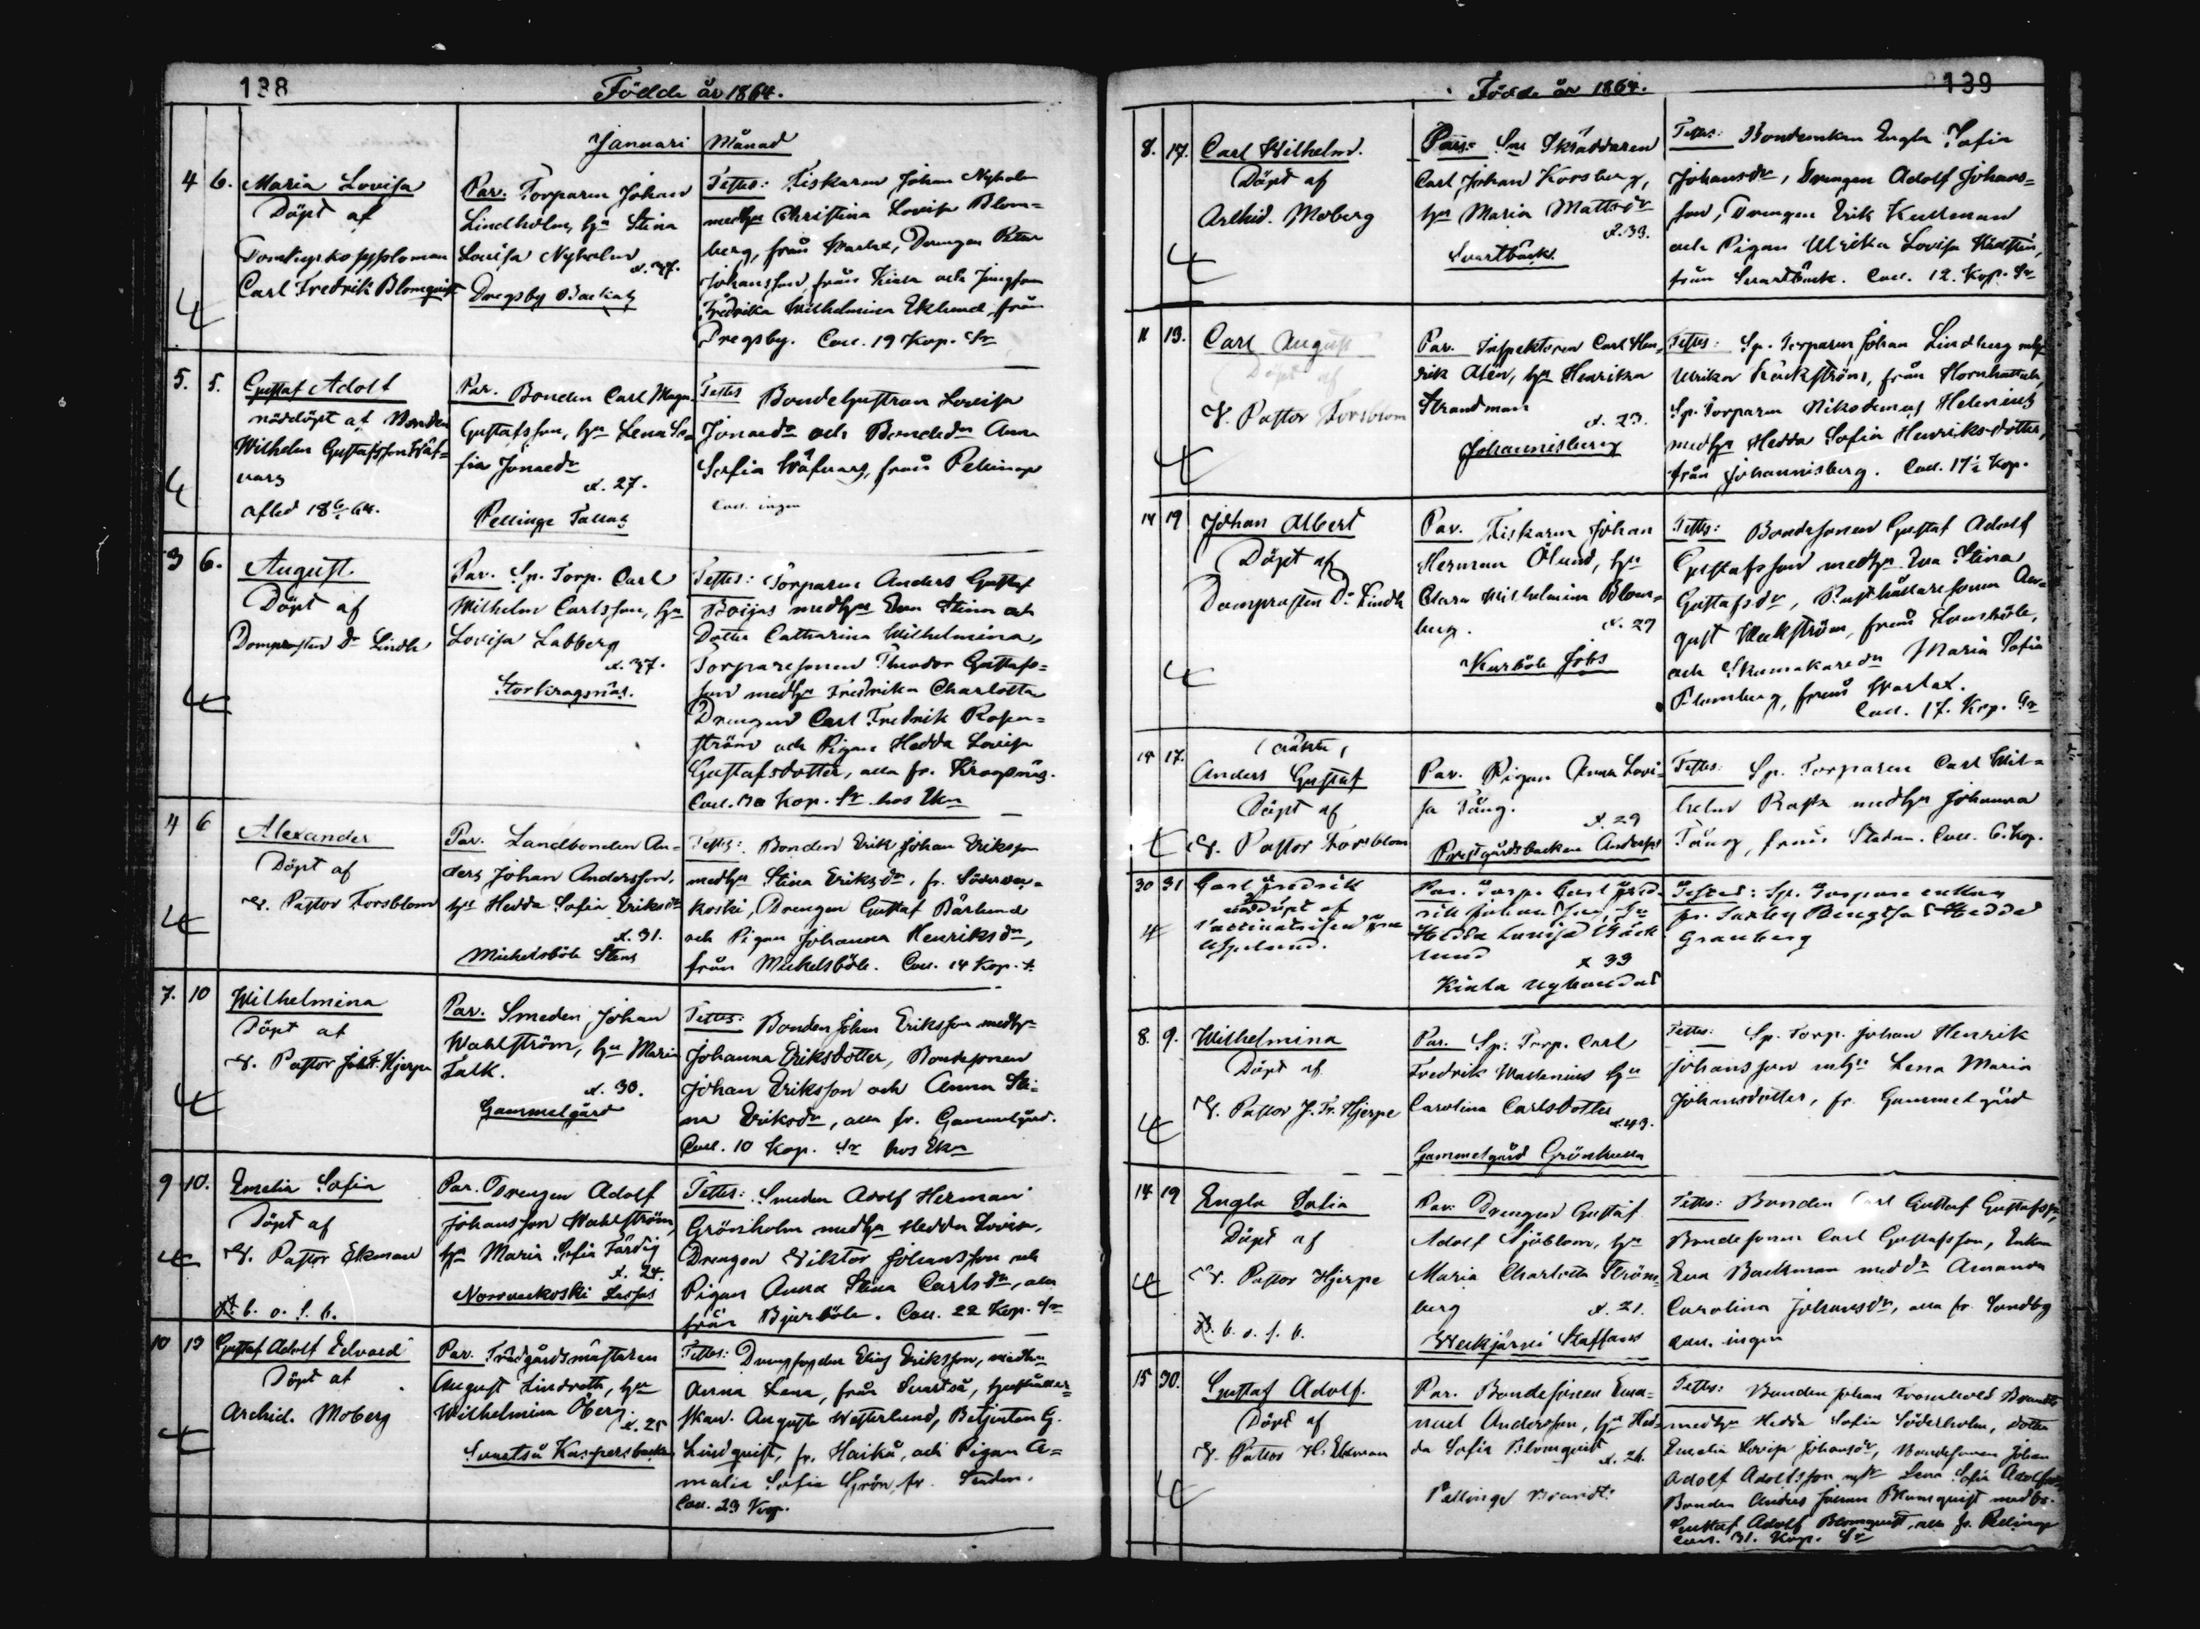 138
Födde år 1864.
Januari Månad
4 6. Maria Lovisa
Döpt af
Domkyrkosyssloman
Carl Fredrik Blomquist
Par. Torparen Johan
Lindholm, hu Stina
Lovisa Nyholm
x. 37.
Drägsby Backas
Testes: Fiskaren Johan Nyholm
med hu Christina Lovisa Blom=
berg, från Drengen Peter
Johansson, från Kiala och Jungfrun
Fredrika Wilhelmina Eklund, från
Dregsby. Coll. 19 Kop. Sr
5. 5. Gustaf Adolf
nöddöpt af Bonden
Wilhelm Gustafsson Wäf=
vars
afled 18 6/1 64.
Par. Bonden Carl Magn.
Gustafsson, hu Lena So=
fia Jonaedr
x. 27.
Pellinge Tallas
Testes Bondehustrun Lovisa
Jonaedr och Bondedr Anna
Sofia Wäfvars, från Pellinge
Coll. ingen
3 6. August
Döpt af
Domprosten Dr Lindh
Par. Sp. Torp. Carl
Wilhelm Carlsson, hu
Lovisa Labberg
x. 37.
Storkrogsnäs.
Testes: Torparen Anders Gustaf
Boijas med hu Eva Stina och
Dotter Catharina Wilhelmina,
Torparesonen Theodor Gustafs=
son med hu Fredrika Charlotta
Drengen Carl Fredrik Rosen=
ström och Pigan Hedda Lovisa
Gustafsdotter, alla fr. Kroksnäs.
Coll. Kop. Sr hos Ekn
4 6 Alexander
Döpt af
V. Pastor Forsblom
Par. Landbonden An=
ders Johan Andersson,
hu Hedda Sofia Eriksdr
x. 31.
Mickelsböle Stens
Testes: Bonden Erik Johan Eriksson
med hu Stina Eriksdr, fr. Söderve=
koski, Drengen Gustaf Bärlund
och Pigan Johanna Henriksdr,
från Mickelsböle. Coll. 14 Kop. Sr
7. 10 Wilhelmina
Döpt af
V. Pastor Joh. F. Hjerpe
Par. Smeden Johan
Wahlström, hu Maria
Falk.
x. 30.
Gammelgård
Testes: Bonden Johan Eriksson med hu
Johanna Eriksdotter, Bondesonen
Johan Eriksson och Anna Sti=
na Eriksdr, alla fr. Gammelgård.
Coll. 10 Kop. Sr hos Ekn
9 10. Emelia Sofia
Döpt af
V. Pastor Ekman
b. o. s. b.
Par. Drengen Adolf
Johansson Wahlström,
hu Maria Sofia Färdig
x. 24.
Norrveckoski Lassas
Testes: Smeden Adolf Herman
Grönholm med hu Hedda Lovisa,
Drengen Viktor Johansson och
Pigan Anna Stina Carlsdr, alla
från Bjurböle. Coll. 22 Kop. Sr
10 13 Gustaf Adolf Edvard
Döpt af
Archid. Moberg
Par. Trädgårdsmästaren
August Lindroth, hu
Wilhelmina Öberg.
x. 25
Svartså Kaspersbacka
Testes: Elias Eriksson, med hu
Anna Lena, från Svartså, hushåller=
skan Augusta Westerlund, Betjenten G.
Lindquist, fr. Haiko, och Pigan A=
malia Sofia Grön, fr. Staden.
Coll. 23 Kop.
139
Födde år 1864.
8. 17. Carl Wilhelm.
Döpt af
Archid. Moberg
Par. Skräddaren
Carl Johan Korsberg,
hu Maria Mattsdr
x. 33.
Svartbäck.
Testes: Bondenkan Engla Sofia
Johansdr, Drengen Adolf Johans=
son, Drengen Erik Kullman
och Pigan Ulrika Lovisa
från Svartbäck. Coll. 12. Kop. Sr
11 13. Carl August
Döpt af
V. Pastor Forsblom
Par. Inspektoren Carl Hen=
rik Alén, hu Henrika
Strandman
x. 23.
Johannisberg
Testes: Sp. Torparen Johan Lindberg med hu
Ulrika Käckström, från Hornhattula,
Sp. Torparen Nikodemus Helenius
med hu Hedda Sofia Henriksdotter,
från Johannisberg. Coll. 17½ Kop.
14 19 Johan Albert
Döpt af
Domprosten Dr Lindh
Par. Fiskaren Johan
Herman Ölund, hu
Clara Wilhelmina Blom=
berg.
x. 27
Kurböle Jöhs
Testes: Bondesonen Gustaf Adolf
Gustafsson med hu Eva Stina
Gustafsdr, Rusthållaresonen Au=
gust Weckström, från
och Skomakaredr Maria Sofia
Blomberg, från
Coll. 17. Kop. Sr
14 17. (oäkta)
Anders Gustaf
Döpt af
V. Pastor Forsblom
Par. Pigan Anna Lovi=
sa Tång.
x. 29
Prestgårdsbacken Anderses
Testes: Sp. Torparen Carl Wil=
helm Rask med hu Johanna
Tång, från Staden. Coll. 6. Kop.
30 31 Carl Fredrik
nöddöpt af
Asplund.
Par. Torp. Carl Fred=
rik Johansson, hu
Hedda Lovisa Bäck
lund
x 33
Kiala Nybondas
Testes: Sp. Torpare enkan
fr. Saxby Hedda
Granberg
8. 9. Wilhelmina
Döpt af
V. Pastor J. Fr. Hjerpe
Par. Sp. Torp. Carl
Fredrik Wallenius hu
Carolina Carlsdotter
x. 43.
Gammelgård Grönkulla
Testes: Sp. Torp. Johan Henrik
Johansson m hu Lena Maria
Johansdotter, fr. Gammelgård
14 19 Engla Sofia
Döpt af
V. Pastor Hjerpe
b. o. s. b.
Par. Drengen Gustaf
Adolf Sjöblom, hu
Maria Charlotta Ström=
berg
x. 21.
Weckjärvi Staffans
Testes: Bonden Carl Gustaf Gustafss.,
Bondesonen Carl Gustafsson, Enkan
Eva Backman med dr Amanda
Carolina Johansdr, alla fr. Sondby
Coll. ingen
15 30. Gustaf Adolf.
Döpt af
V. Pastor H. Ekman
Par. Bondesonen Ema=
nuel Andersson, hu Hed=
da Sofia Blomquist
x. 26.
Pellinge Brandts
Testes: Bonden Johan Brandt
med hu Hedda Sofia Söderholm, dotter
Emelia Lovisa Johansdr, Bondesonen Johan
Adolf Adolfsson m hu Lena Sofia
Bonden Anders Johan Blomquist med br.
Gustaf Adolf Blomquist, alla fr. Pellinge
Coll. 31. Kop. Sr